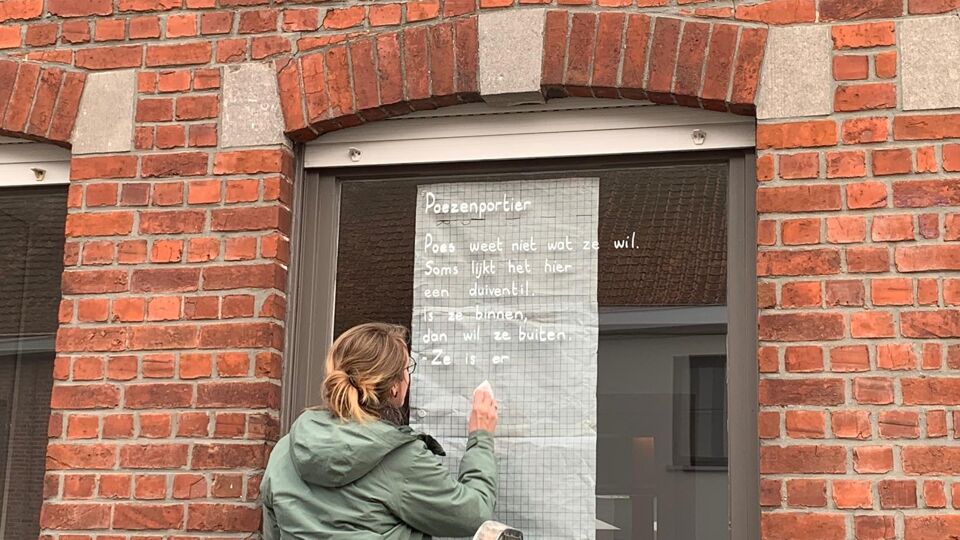 Poezenportier
Poes weet niet wat ze wil.
Soms lijkt het hier
een duiventil.
Is ze binnen,
dan wil ze buiten.
Ze is er